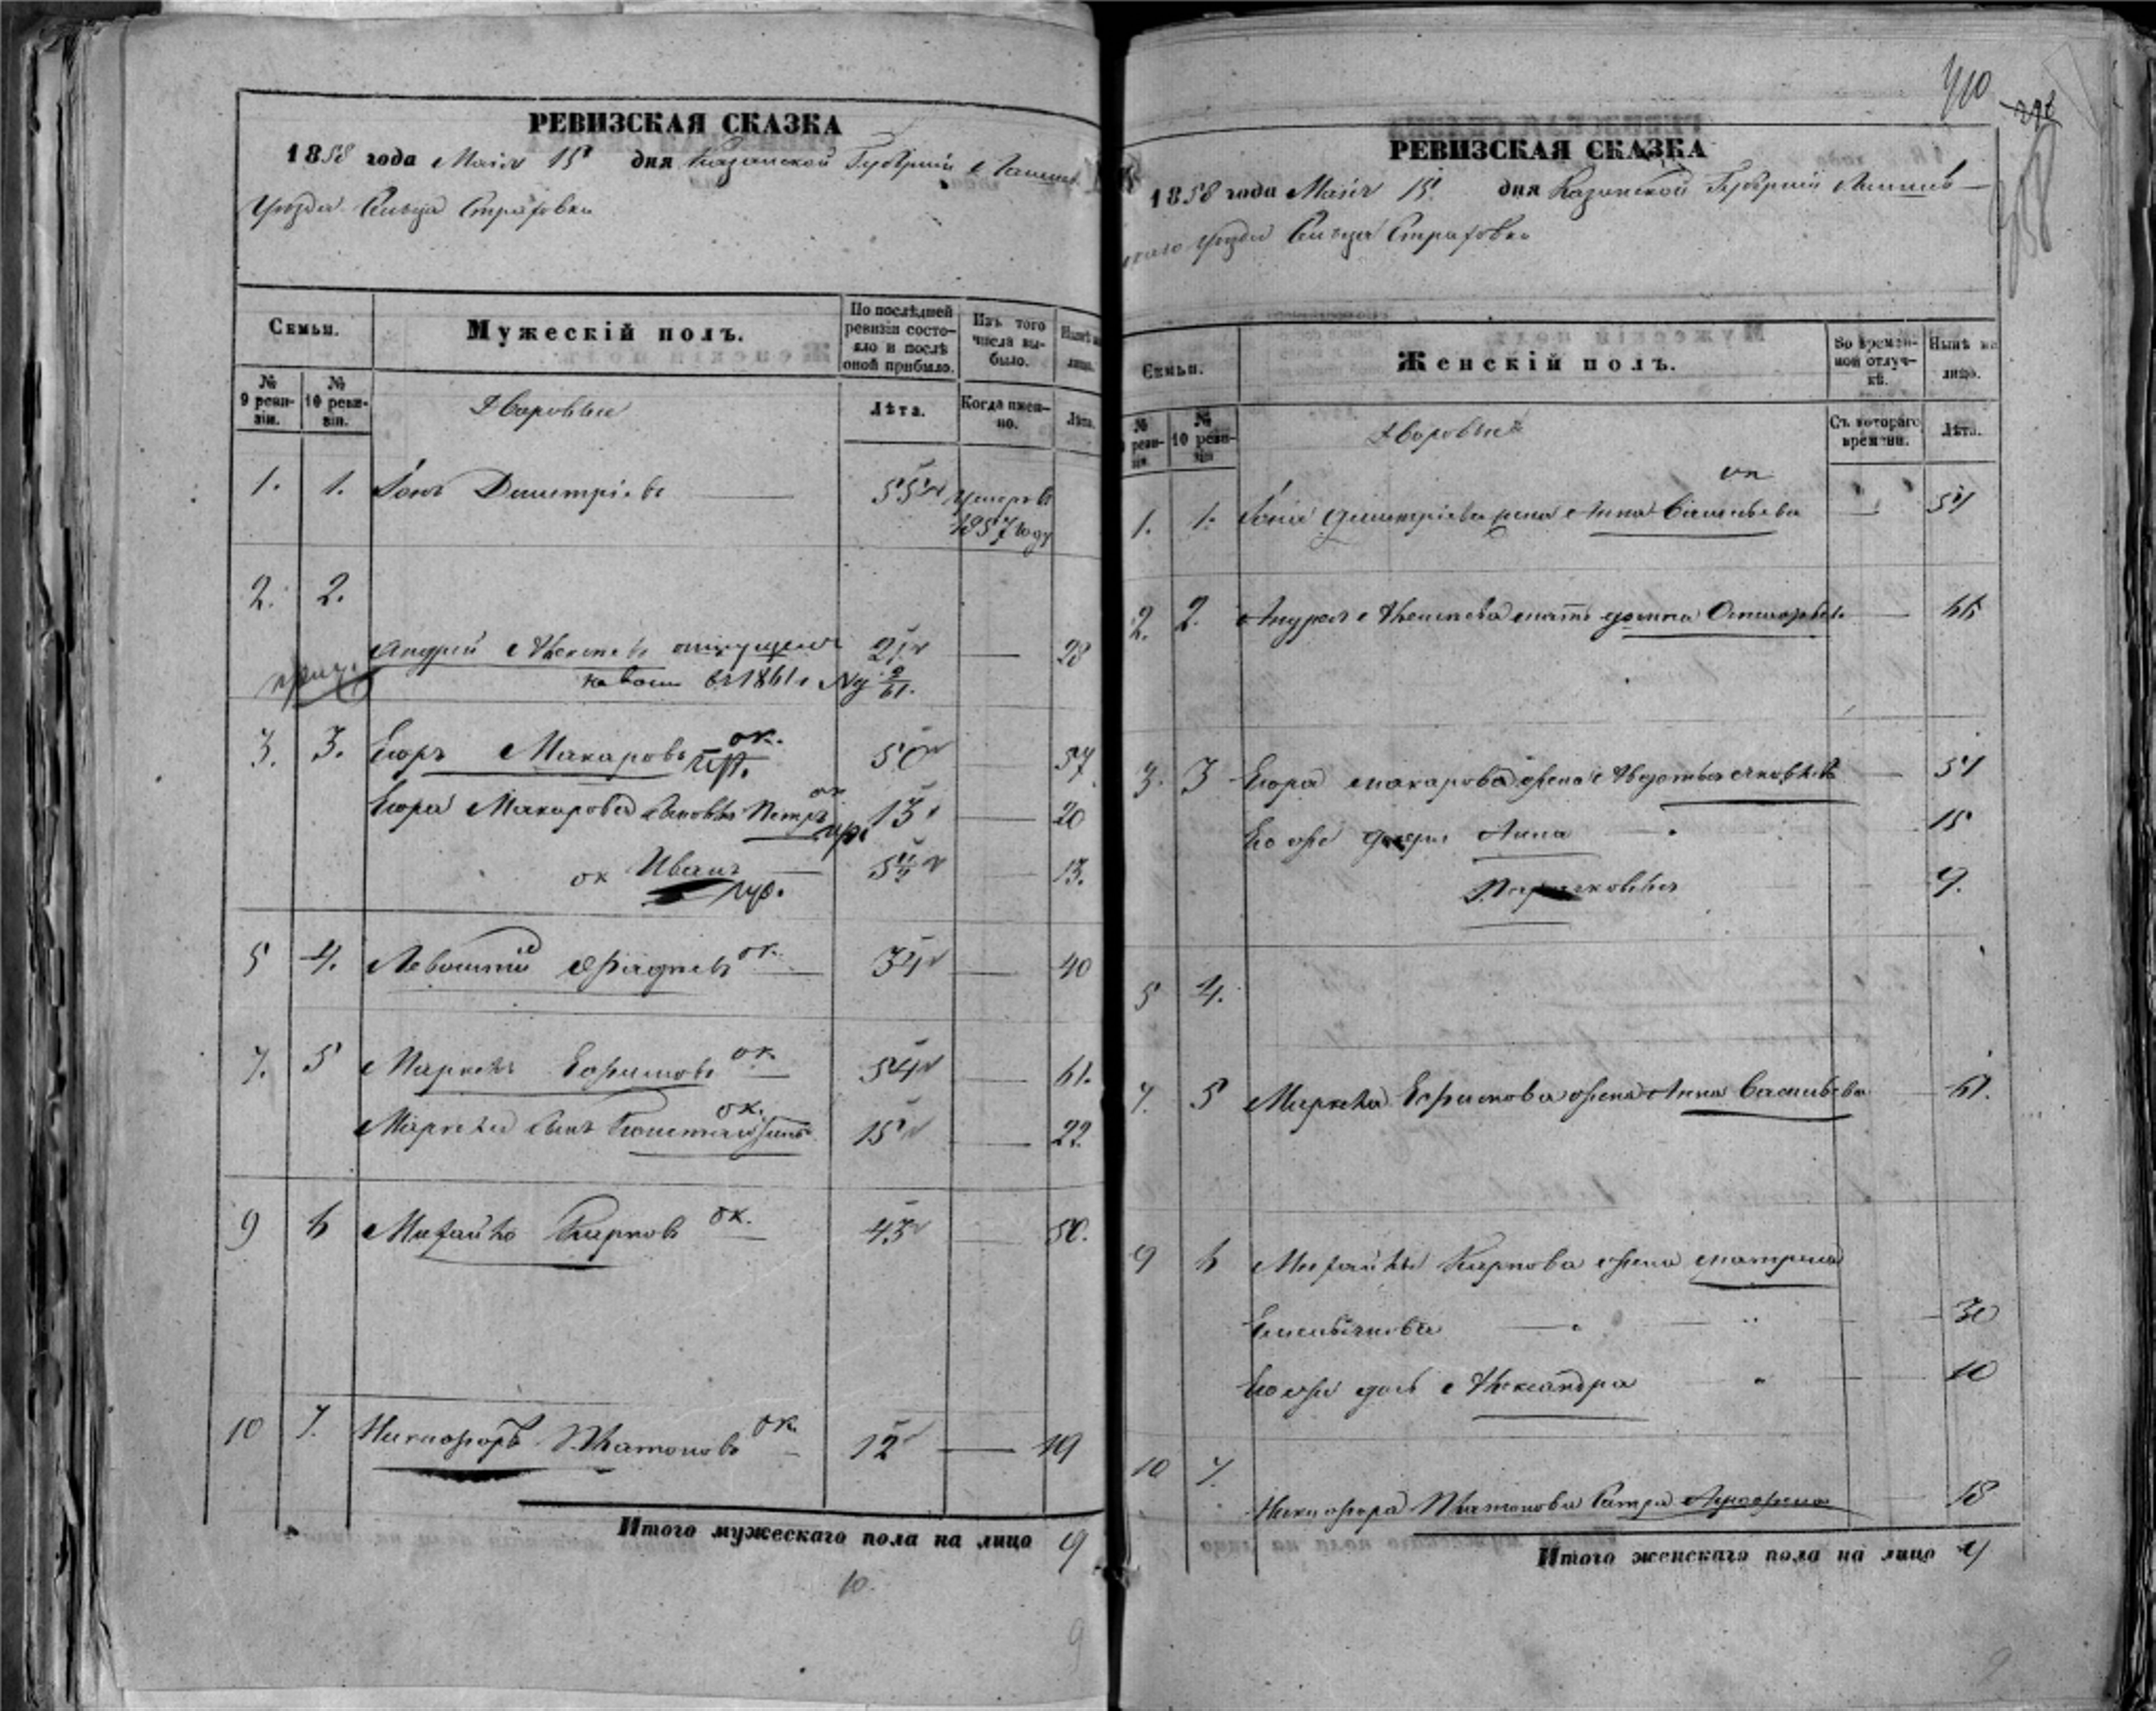 РЕВИЗСКАЯ СКАЗКА
1858 года Маія 15 дня Казанской Губерніи Лаишев
Уѣзда Сельца Страховки
Семьи.
Мужескій полъ.
По послѣдней ревизіи состояло и послѣ оной прибыло.
Изъ того числа выбыло.
Нынѣ на лицо.
№ 9 ревизіи.
№ 10 ревизіи.
Дворовые
Лѣта.
Когда именно.
Лѣта.
1. 1. Іонъ Дмитріевъ 55 Умеръ въ 1857 году
2. 2.
Андрей Алексѣевъ отпущенъ 21 — 28
на волю въ 1861
3. 3. Егоръ Макаровъ ок. 50 57
Егора Макарова сыновья Петръ ок 13 — 20
ок Иванъ 5 — 13.
5 4. Леонтій ок. 34 — 40
7. 5 Маркелъ Ефимовъ ок. 54 — 61.
Маркела сынъ Константинъ ок. 15 — 22.
9 6 Михайло Карповъ ок. 43 — 50.
10 7. Никифоръ Платоновъ ок. 12 — 19
Итого мужескаго пола на лицо 9
10.
9
410
РЕВИЗСКАЯ СКАЗКА
1858 года Маія 15 дня Казанской Губерніи Лаишев—
скаго Уѣзда Сельца Страховки
Семьи.
Женскій полъ.
Во временной отлучкѣ.
Нынѣ на лицо.
№ 9 ревизіи
№ 10 ревизіи
Дворовые
Съ котораго времени.
Лѣта.
ок
1. 1. Іона Дмитріева жена Анна Васильева — 54
2. 2. Андрея Алексѣева мать — 66
3. 3 Егора Макарова жена Авдотья Яковлева — 51
Его же дочери Анна 15
9.
5 4.
7. 5 Маркела Ефимова жена Анна Васильева 61.
9 6 Михайлы Карпова жена Матрена
Емельянова — 30
Его же дочь Александра 10
10 7.
Никифора Платонова сестра 18
Итого женскаго пола на лицо 9